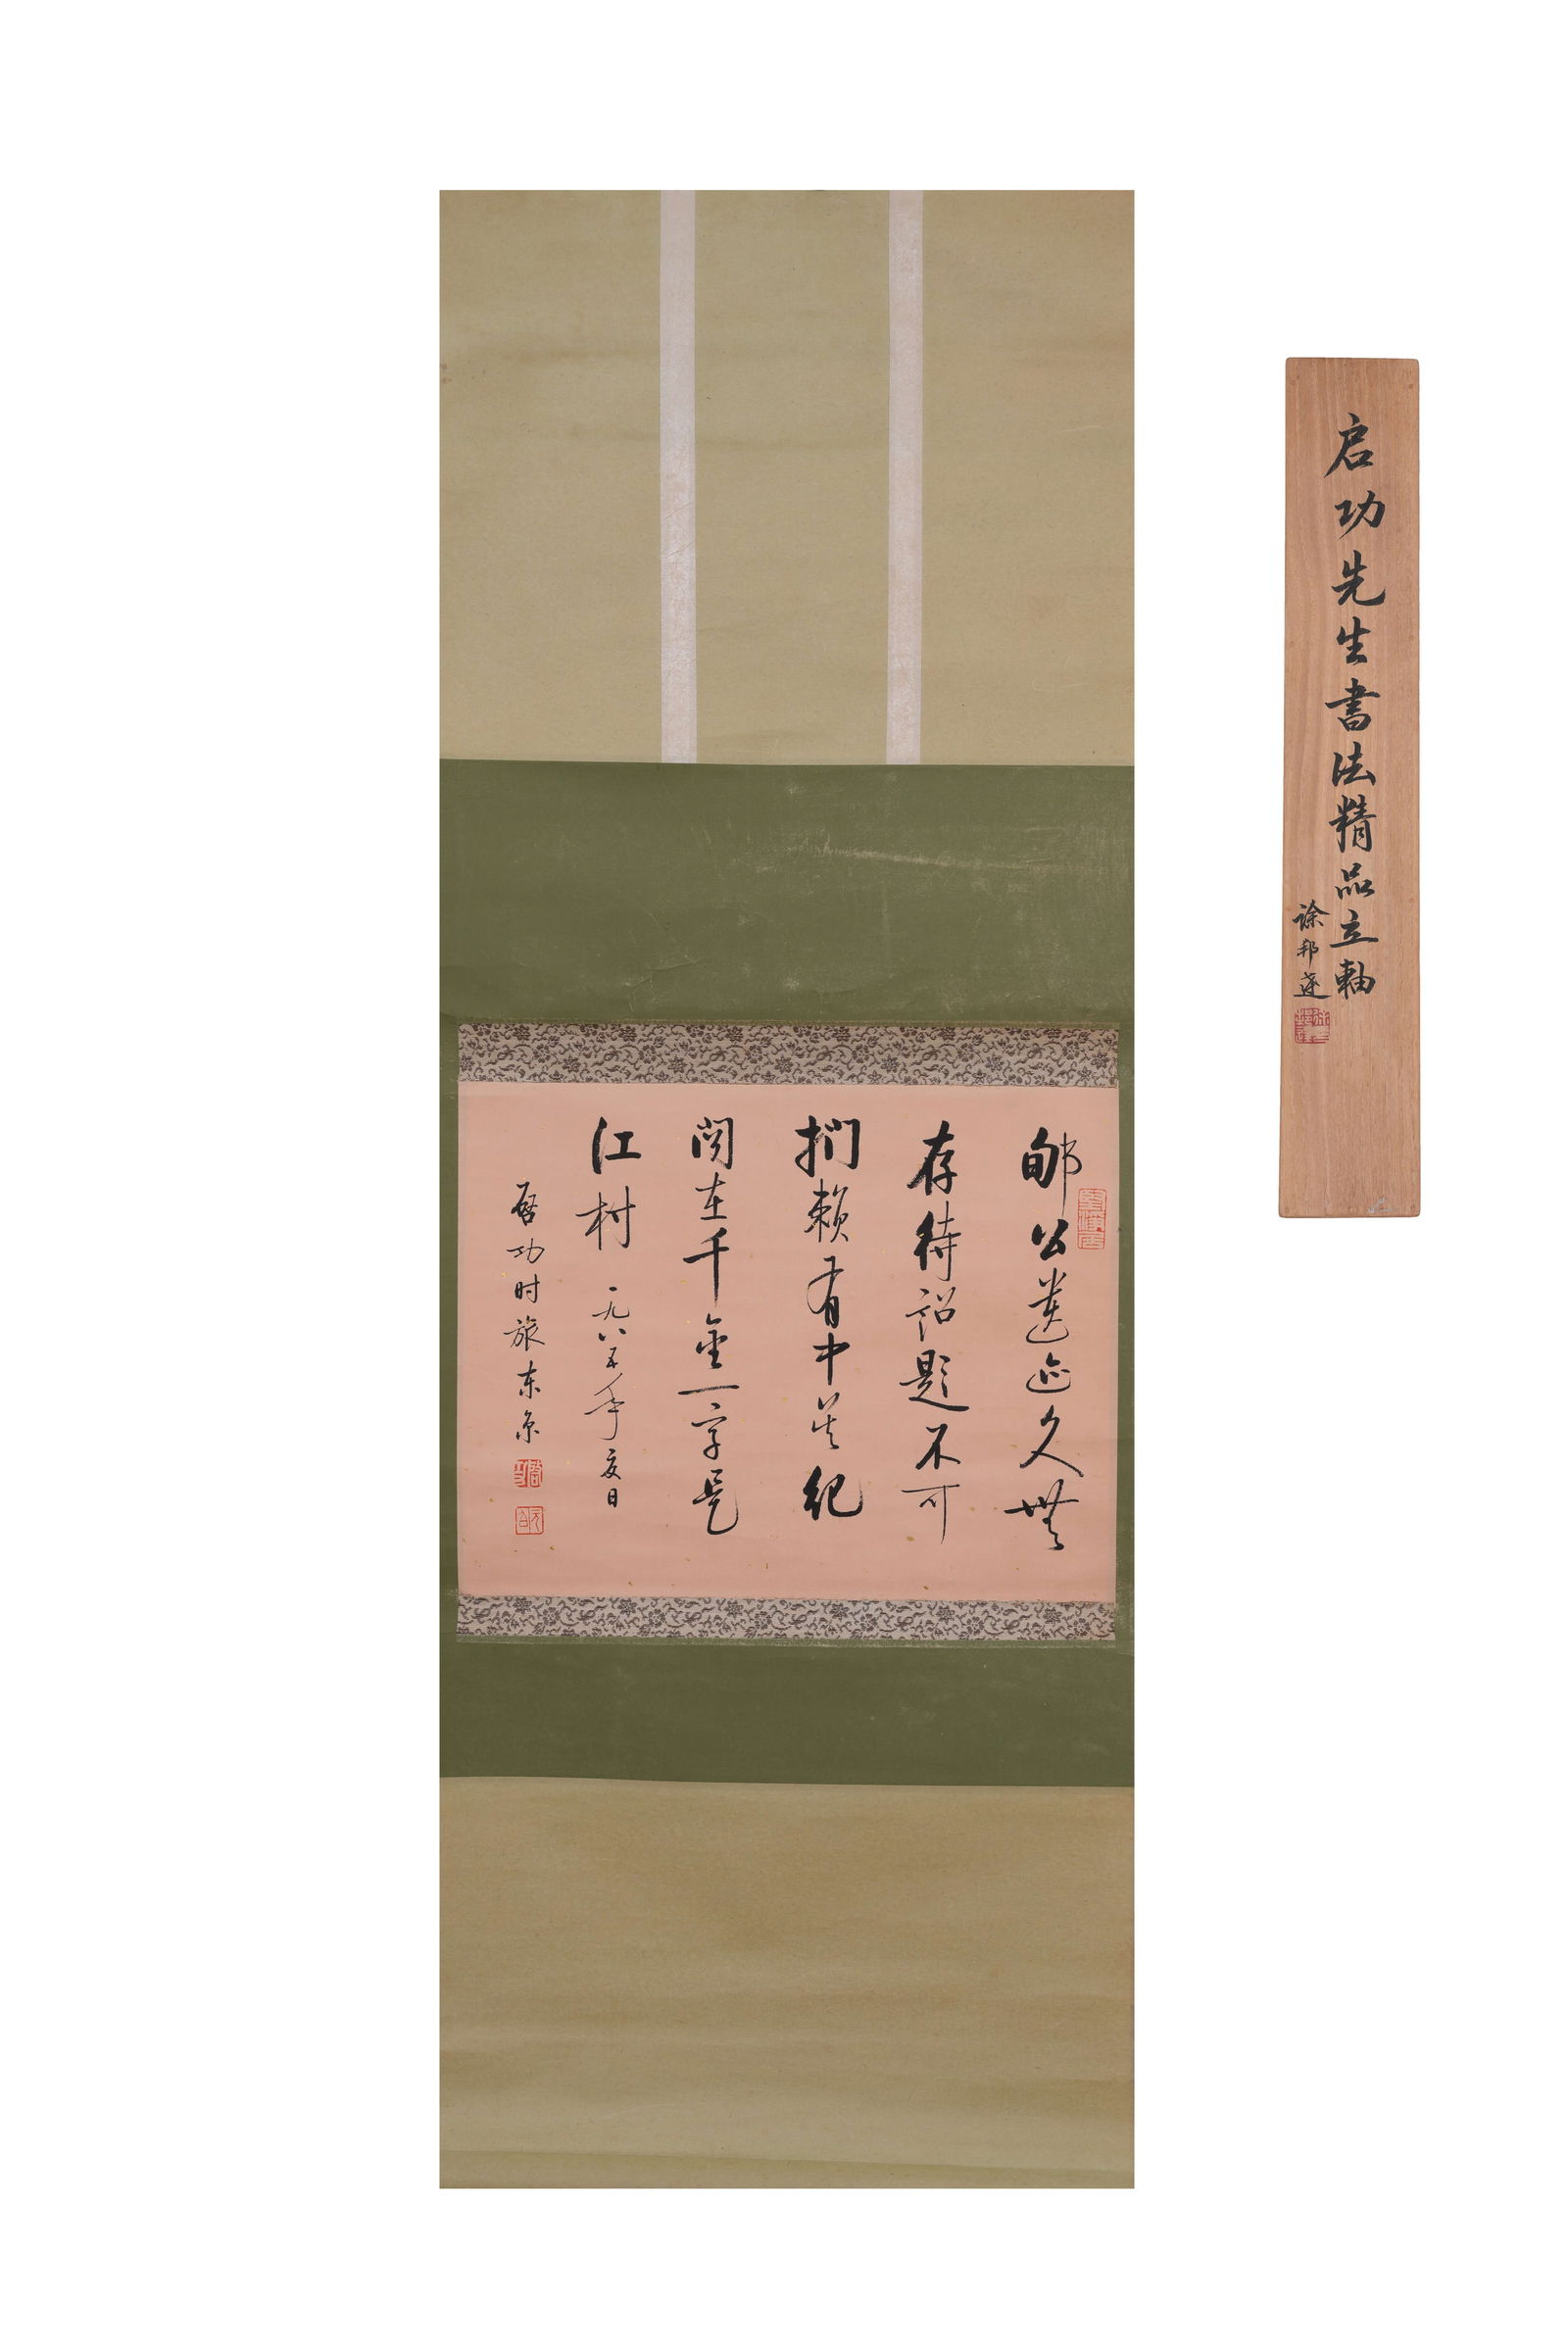 郇公遺迹久無
存待詔題不可
捫賴有中吴紀
聞在千金一字是
江村 一九八五年夏日
啓功时旅东京
启功先生書法精品立軸
徐邦達